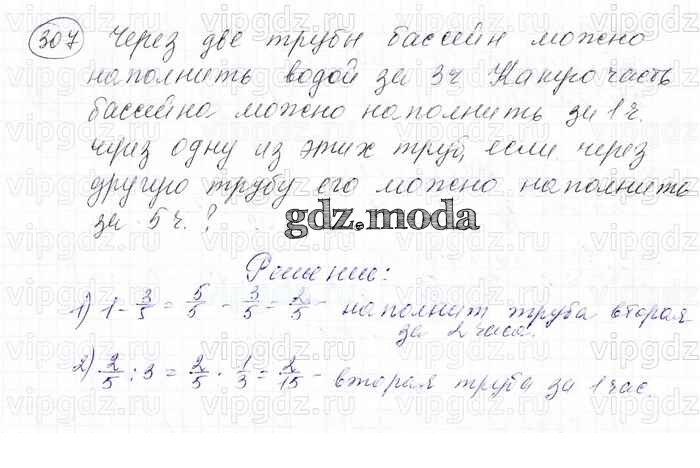 307 Через две трубы бассейн можно
наполнить водой за 3ч Какую часть
бассейна можно наполнить за 1 ч.
через одну из этих труб, если через
другую трубу его можно наполнить
за 5ч. ?
gdz.moda
Решение:
1) 1 - 3/5 = 5/5 - 3/5 = 2/5 - наполнит труба вторая
за 2 часа.
2) 2/5 : 3 = 2/5 · 1/3 = 2/15 - вторая труба за 1 час.